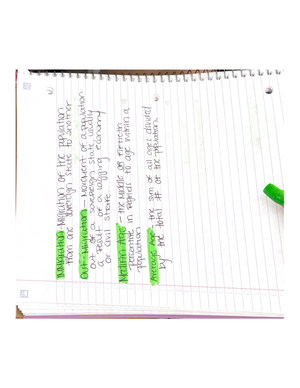 Immigration - Migration of the population
from one sovereign state to another
Out-Migration - Movement of a population
out of a sovereign state, usually
a result of a lagging economy
or civil strife
Median Age - the middle or fiftieth
percentile in regards to age within a
population
Average Age - the sum of all ages divided
by the total # of the population.